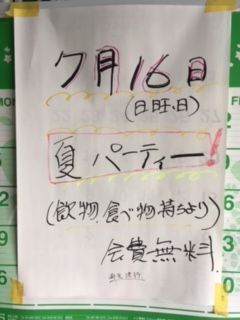 7月16日
(日曜日)
夏パーティー!
(飲物、食べ物持ちより)
会費無料